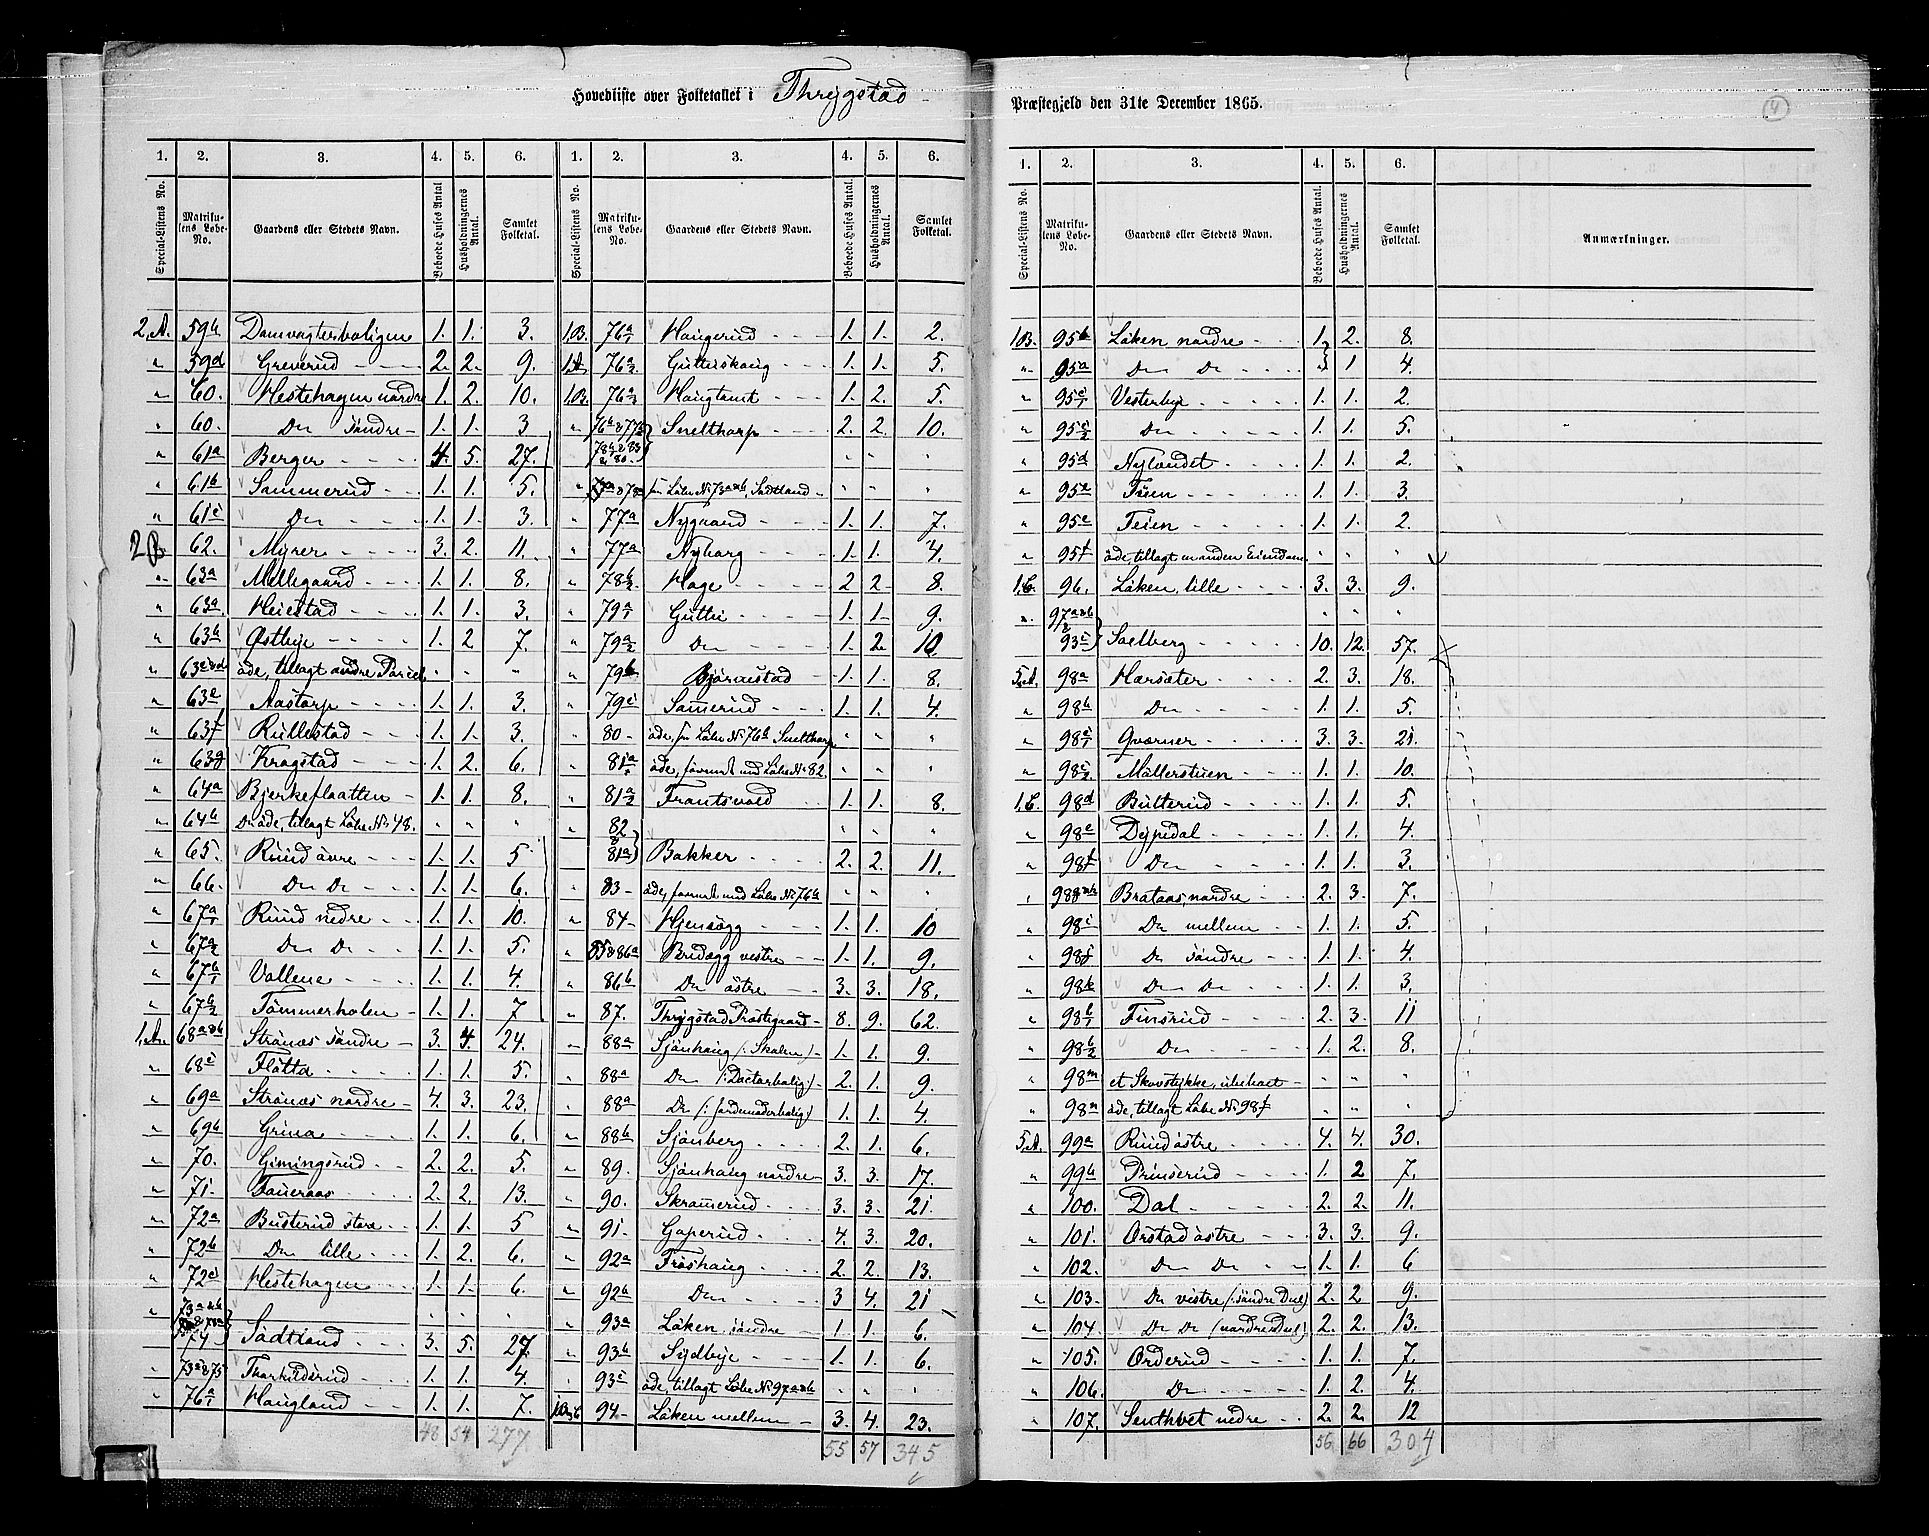 Hovedliste over Folketallet i Thrygstad Præstegjeld den 31te December 1865.
4
1. 2. 3. 4. 5. 6. 1. 2. 3. 4. 5. 6.
Special-Listens No. Matrikulens Løbe-No. Gaardens eller Stedets Navn. Beboede Huses Antal Husholdningernes Antal. Samlet Folketal. Special-Listens No. Matrikulens Løbe-No. Gaardens eller Stedets Navn. Beboede Huses Antal. Husholdningernes Antal. Samlet Folketal.
2.A. 59b Damvogterboligen 1. 1. 3.
" 59d Greverud 2. 2. 9.
" 60. Hestehagen nordre 1. 2. 10.
" 60. Do søndre 1. 1. 3
" 61a Berger 4. 5. 27.
" 61b Sammerud 1. 1. 5.
" 61c Do 1. 1. 3.
2B. 62. Myrer 3. 2. 11.
" 63a Mellegaard 1. 1. 8.
" 63a Heiestad 1. 1. 3.
" 63b Østbye 1. 2 7.
" 63c&d øde, tillagt andre Parcel. " " "
" 63e Aastorp 1. 1. 3.
" 63f Rullestad 1. 1. 3.
" 63g Kragstad 1. 2. 6.
" 64a Bjerkeflaatten 1. 1. 8.
" 64b Do øde, tillagt Løbe No 48. " " "
" 65. Ruud øvre 1. 1. 5
" 66. Do Do 1. 1. 6.
" 67a/1 Ruud nedre 1. 1. 10.
" 67a/2 Do Do 1. 1. 5.
" 67b/1 Vollene 1. 1. 4.
" 67b/2 Tømmerholen 1. 1. 7
1.A. 68a&b Strønæs søndre 3. 4. 24.
" 68c Fløtta 1. 1. 5.
" 69a Strønæs nordre 4. 3. 23.
" 69b Grina 1. 1. 6.
" 70. Gimingsrud 2. 2. 5.
" 71. Taueraas 2. 2. 13.
" 72a Busterud store 1. 1. 5
" 72b Do lille 1. 2. 6.
" 72c Hestehagen 1. 1. 6.
" 73a&b
74 Sødtland 3. 5. 27.
" 73c&75 Thorkildsrud 1. 1. 4.
" 76a/1 Haugland 1. 1. 7.
48 54 277
1.B. 76a/1 Haugerud 1. 1. 2.
1.A. 76a/2 Guttuskoug 1. 1. 5.
1.B. 76a/3 Haugtomt 1. 2. 5.
" Snelthorp 2. 2. 10.
" fra Løbe No 73a&b, Sødtland " " "
" 77a Nygaard 1. 1. 7.
" 77a Nyborg 1. 1. 4.
" 78b/2 Hage 2 2 8.
" 79a/1 Guttu 1. 1. 9.
" 79a/2 Do 1. 2. 10.
" 79b Bjørnestad 1. 1. 8.
" 79c Sam̄erud 1. 1. 4.
" 80 øde, fra Løbe No 76b Snelthorp " " "
" 81a/1 øde, forenet med Løbe No 82. " " "
" 81a/2 Frantsvold 1. 1. 8.
" 82
&
81a Bakker 2. 2. 11.
" 83 øde, forenet med Løbe No 76b " " "
" 84 Hjensøgg 1. 1. 10
" 85&86a Bredøgg vestre 1. 1. 9.
" 86b Do østre 3. 3. 18.
" 87. Thrygstad Præstegaard 8. 9. 62.
" 88a Sjønhaug (: Skolen) 1. 1. 9.
" 88a Do (: Doctorbolig:) 2. 1. 9.
" 88a Do (: Jordemoderbolig:) 1. 1. 4.
" 88b Sjønberg 2. 1. 6.
" 89. Sjønhaug nordre 3. 3. 17.
" 90. Skram̄erud 3. 3. 21.
" 91. Gaperud 4. 3. 20.
" 92a Frøshaug 2. 2. 13.
" 92b Do 3 4. 21
" 93a Løken søndre 1. 1. 6.
" 93b Sydbye 1. 1. 6.
" 93c øde, tillagt Løbe No 97a&b " " "
94 Løken mellem 3. 4. 23.
55 57 345
1. 2. 3. 4. 5. 6.
Special-Listens No. Matrikulens Løbe-No. Gaardens eller Stedets Navn. Beboede Huses Antal. Husholdningernes Antal. Samlet Folketal. Anmærkninger.
1B. 95b Løken nordre 1. 2. 8.
" 95a Do Do " 1 4.
" 95c/1 Vesterbye 1. 1. 2.
" 95c/2 Do 1. 1. 5.
" 95d Nylændet 1. 1. 2.
" 95e Tosen 1. 1. 3.
" 95e Teien 1. 1. 2.
" 95f øde, tillagt en anden Eiendom " " "
1.C. 96. Løken, lille 3. 3. 9.
" 97a&b " " "
&
93c Soelberg 10. 12. 57.
5.A. 98a Hærsæter 2. 3. 18.
" 98b Do 1. 1. 5.
" 98c/1 Qværner 3. 3. 21.
" 98c/2 Møllerstuen 1. 1. 10.
1.C. 98d Butterud 1. 1. 5.
" 98e Dypedal 1. 1. 4.
" 98f Do 1. 1. 3.
" 98g&h Brataas, nordre 2. 3. 7.
" 98i Do mellem 1. 1. 5.
" 98j Do søndre 1. 1. 4.
" 98k Do Do 1. 1. 3.
" 98l/1 Finsrud 2. 3. 11
" 98l/2 Do 1. 2. 8.
" 98m et Skovstykke, ubeboet " " "
" 98n øde, tillagt Løbe No 98f " " "
5.A. 99a Ruud østre 4. 4. 30.
" 99b Prinserud 1. 2 7.
" 100. Dal 2. 2. 11.
" 101. Ørstad østre 3. 3. 9.
" 102. Do Do 1. 1. 6
" 103 Do vestre (: søndre Deel) 2. 2 9.
" 104 Do Do (nordre Deel) 2. 2. 13.
" 105. Orderud 1. 1. 7.
" 106. Do 1. 2. 4.
" 107. Senthvet nedre 2. 2. 12
56 66 304